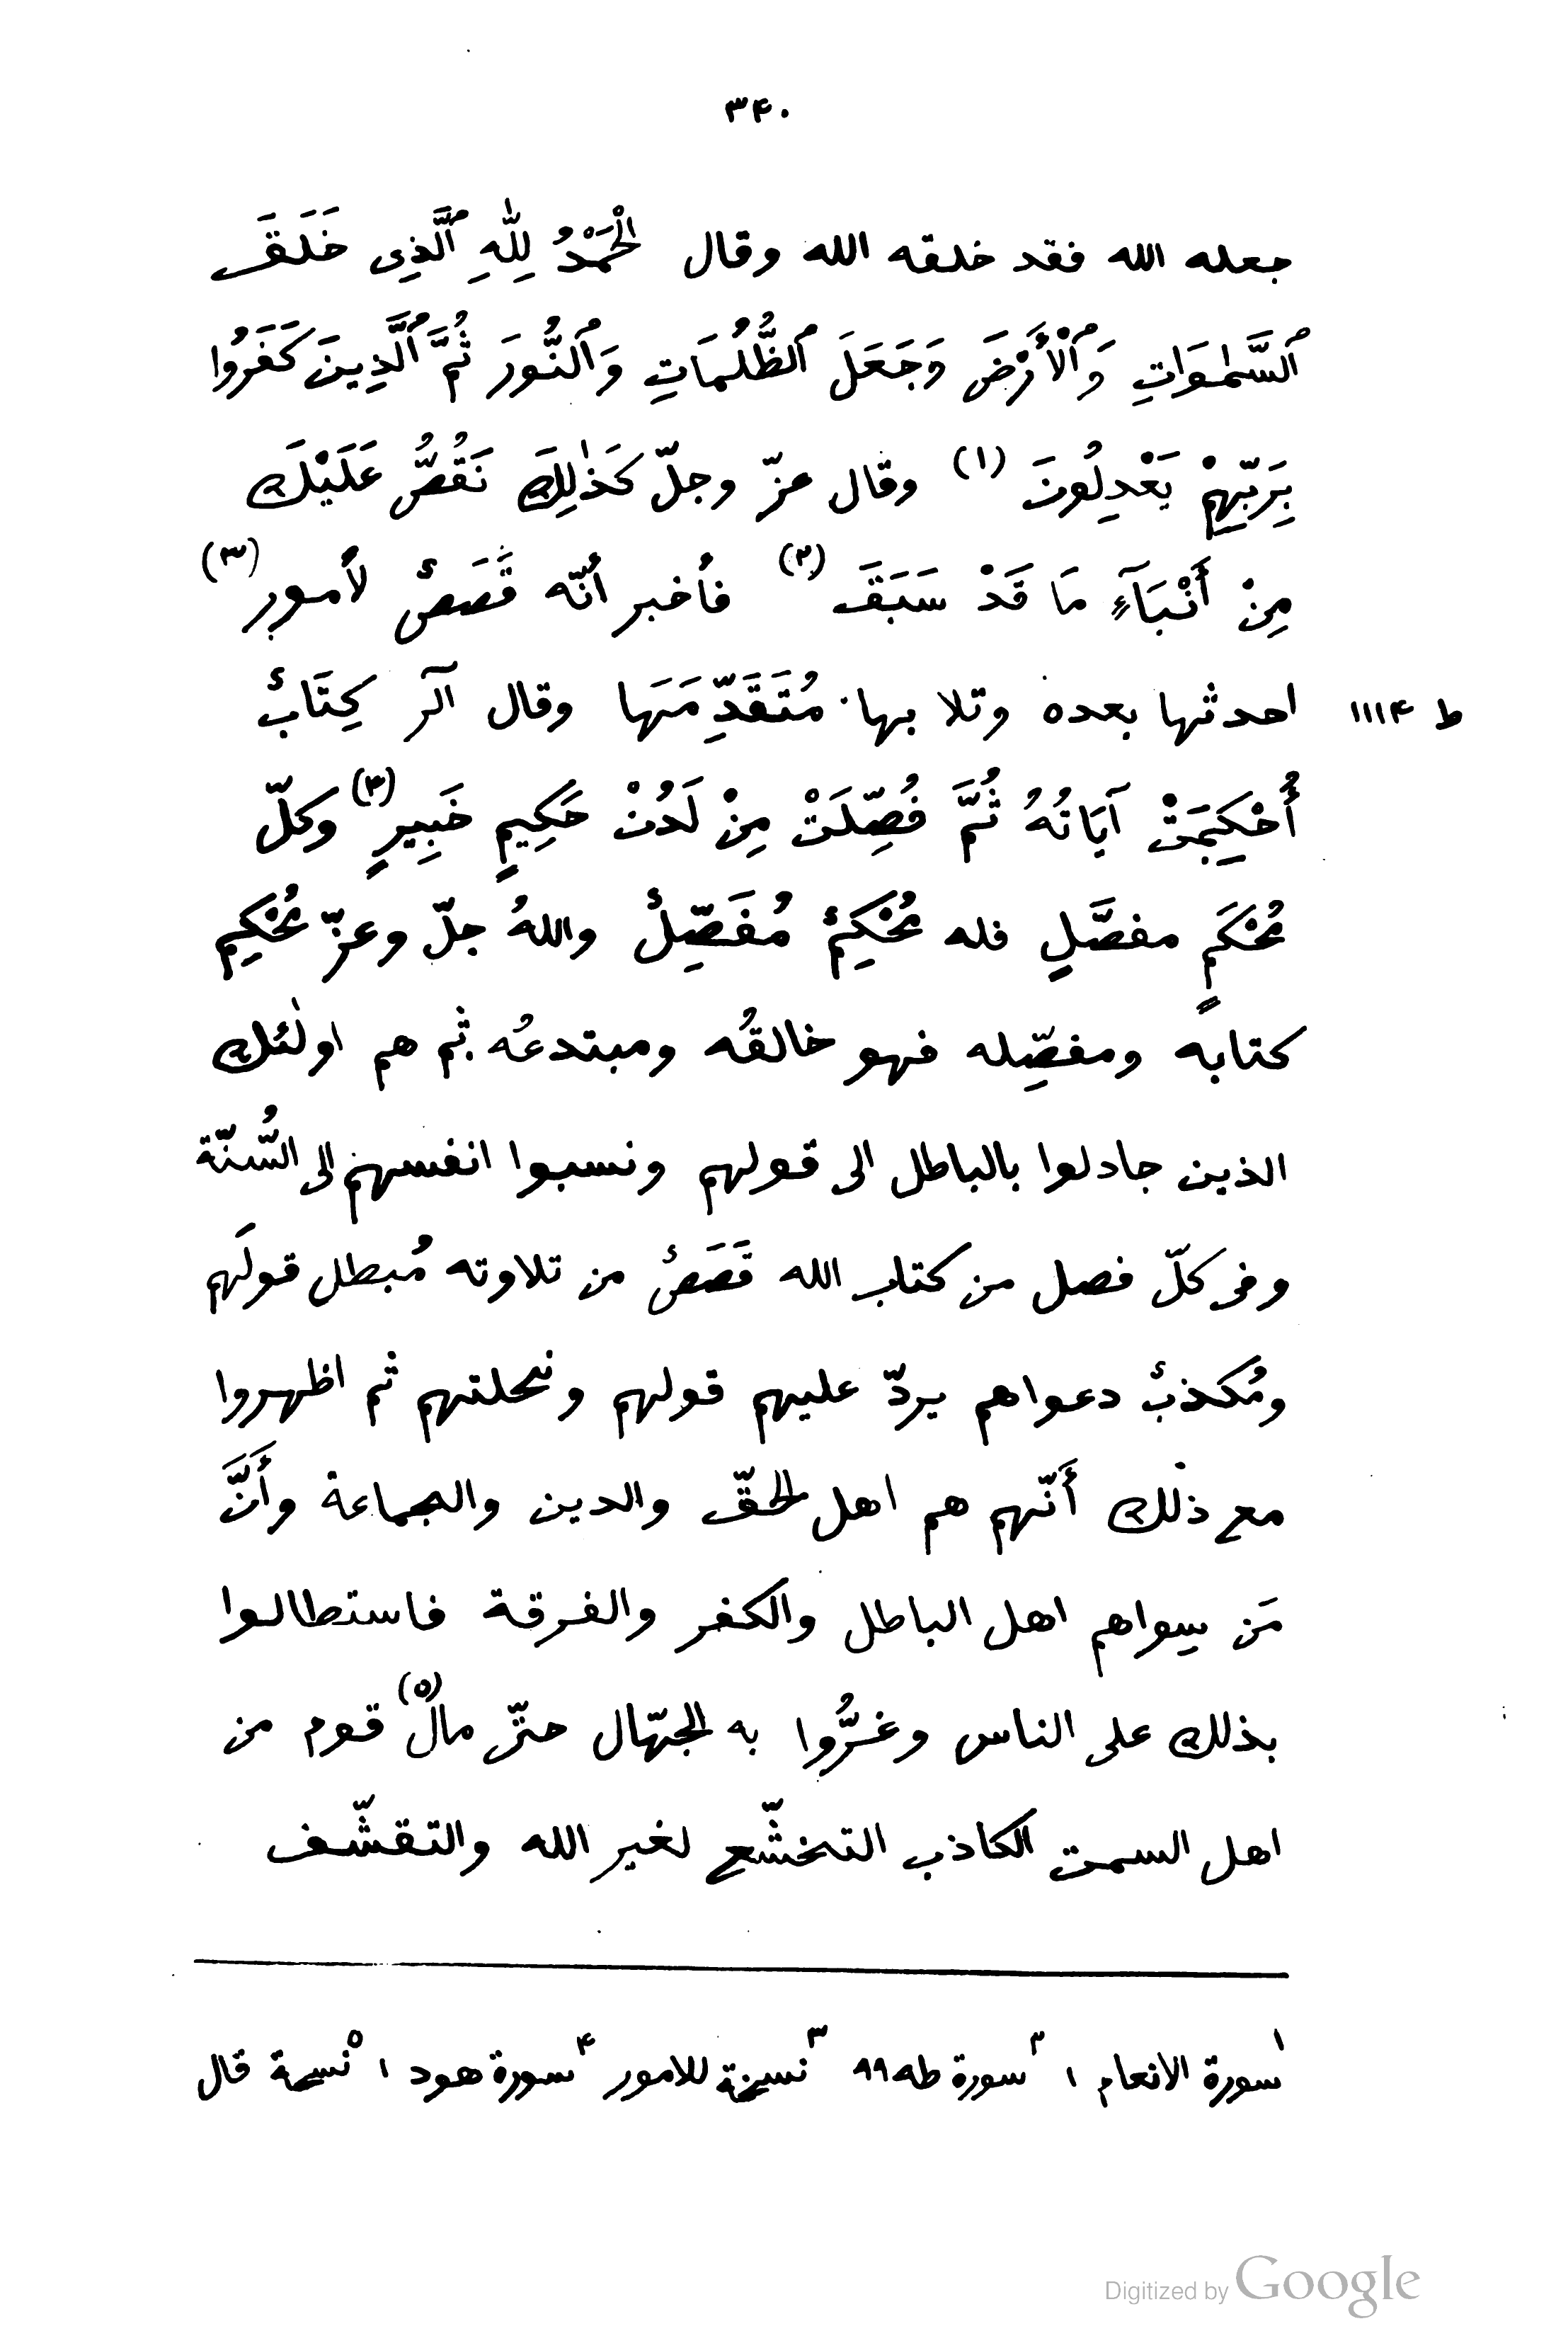 ٣٤٠
جعله الله فقد خلقه الله وقال الْحَمْدُ لِلّٰهِ ٱلَّذِى خَلَقَ
ٱلسَّمٰوَاتِ وَٱلْأَرْضَ وَجَعَلَ ٱلظُّلُمَاتِ وَٱلنُّورَ ثُمَّ ٱلَّذِينَ كَفَرُوا
بِرَبِّهِمْ يَعْدِلُونَ (١) وقال عزّ وجلّ كَذٰلِكَ نَقُصُّ عَلَيْكَ
مِنْ أَنْبَآءِ مَا قَدْ سَبَقَ (٢) فأخبر أنّه قَصَصٌ لأمور (٣)
ط ١١١٤ احدثها بعده وتلا بها مُتَقَدِّمَهَا وقال آلر كِتَابٌ
أُحْكِمَتْ آيَاتُهُ ثُمَّ فُصِّلَتْ مِنْ لَدُنْ حَكِيمٍ خَبِيرٍ (٤) وكلّ
مُحْكَمٍ مفصَّلٍ فله مُحْكِمٌ مُفَصِّلٌ واللهُ جلّ وعزّ مُحْكِم
كتابه ومفصِّله فهو خالقُه ومبتدعُه ثم هم اولٰئك
الذين جادلوا بالباطل الى قولهم ونسبوا انفسهم الى السُّنّة
وفى كلّ فصل من كتاب الله قَصَصٌ من تلاوته مُبطل قولَهم
ومُكذبٌ دعواهم يردّ عليهم قولهم ونحلتهم ثم اظهروا
مع ذٰلك أَنّهم هم اهل الحقّ والدين والجماعة وأَنَّ
مَن سواهم اهل الباطل والكفر والفرقة فاستطالوا
بذلك على الناس وغرُّوا به الجهّال حتّى مال (٥) قوم من
اهل السمت الكاذب التخشّع لغير الله والتقشّف
١ سورة الانعام ١ ٢ سورة طه ٩٩ ٣ نسخة للامور ٤ سورة هود ١ ٥ نسخة قال
Digitized by Google